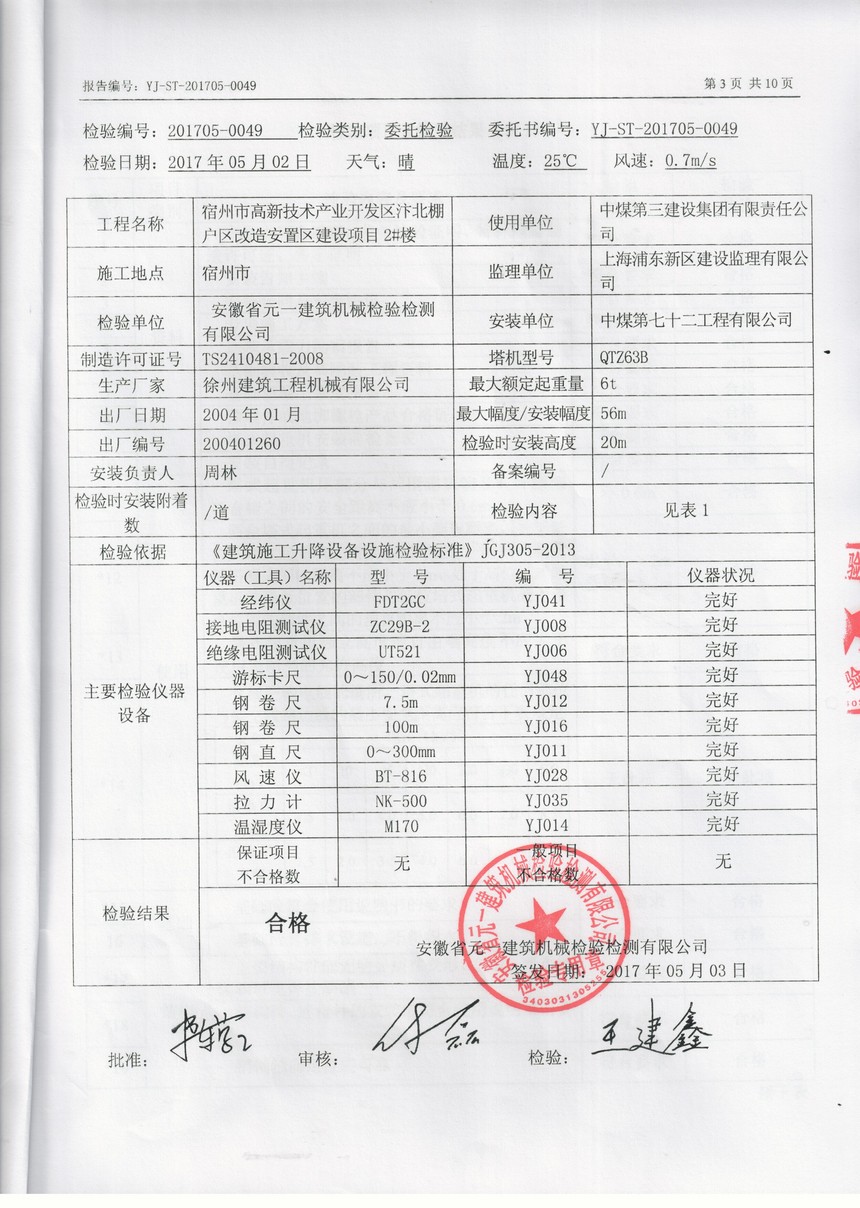 报告编号：YJ-ST-201705-0049 第 3 页 共 10 页
检验编号：201705-0049 检验类别：委托检验 委托书编号：YJ-ST-201705-0049
检验日期：2017 年 05 月 02 日 天气：晴 温度：25℃ 风速：0.7m/s
工程名称 宿州市高新技术产业开发区汴北棚
户区改造安置区建设项目 2#楼 使用单位 中煤第三建设集团有限责任公
司
施工地点 宿州市 监理单位 上海浦东新区建设监理有限公
司
检验单位 安徽省元一建筑机械检验检测
有限公司 安装单位 中煤第七十二工程有限公司
制造许可证号 TS2410481-2008 塔机型号 QTZ63B
生产厂家 徐州建筑工程机械有限公司 最大额定起重量 6t
出厂日期 2004 年 01 月 最大幅度/安装幅度 56m
出厂编号 200401260 检验时安装高度 20m
安装负责人 周林 备案编号 /
检验时安装附着
数 /道 检验内容 见表 1
检验依据 《建筑施工升降设备设施检验标准》JGJ305-2013
主要检验仪器
设备
仪器（工具）名称 型 号 编 号 仪器状况
经纬仪 FDT2GC YJ041 完好
接地电阻测试仪 ZC29B-2 YJ008 完好
绝缘电阻测试仪 UT521 YJ006 完好
游标卡尺 0～150/0.02mm YJ048 完好
钢 卷 尺 7.5m YJ012 完好
钢 卷 尺 100m YJ016 完好
钢 直 尺 0～300mm YJ011 完好
风 速 仪 BT-816 YJ028 完好
拉 力 计 NK-500 YJ035 完好
温湿度仪 M170 YJ014 完好
检验结果
保证项目
不合格数 无 一般项目
不合格数 无
合格
安徽省元一建筑机械检验检测有限公司
签发日期： 2017 年 05 月 03 日
安徽省元一建筑机械检验检测有限公司
检验专用章
批准： 审核： 检验： 王建鑫